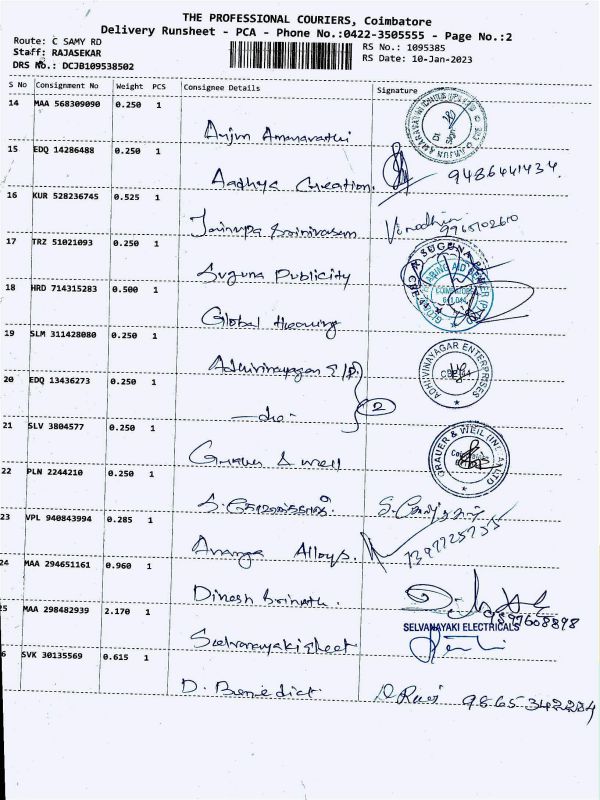 THE PROFESSIONAL COURIERS, Coimbatore
Delivery Runsheet - PCA - Phone No.:0422-3505555 - Page No.:2
Route: C SAMY RD
RS No.: 1095385
Staff: RAJASEKAR
RS Date: 10-Jan-2023
DRS No.: DCJB109538502
S No Consignment No Weight PCS Consignee Details Signature
14 MAA 568309090 0.250 1
Anjun Amaravathi
15 EDQ 14286488 0.250 1
Aadhya Creation. 9486441434.
16 KUR 528236745 0.525 1
Srinivasan Vinodhin
9965102600
17 TRZ 51021093 0.250 1
Suguna Publicity
18 HRD 714315283 0.500 1
Global Hearing
COIMBATORE
19 SLM 311428080 0.250 1
Adhivinayagan
ADHIVINAYAGAR ENTERPRISES
20 EDQ 13436273 0.250 1
-do- 2
21 SLV 3804577 0.250 1
Grauer & Weil
GRAUER & WEIL (INDIA) LTD
22 PLN 2244210 0.250 1
23 VPL 940843994 0.285 1
Ananga Alloys. 7397725735
24 MAA 294651161 0.960 1
Dinesh Srinath.
9897608898
25 MAA 298482939 2.170 1
SELVANAYAKI ELECTRICALS
Selvanayaki
6 SVK 30135569 0.615 1
D. Benedict D Ravi 9865342284